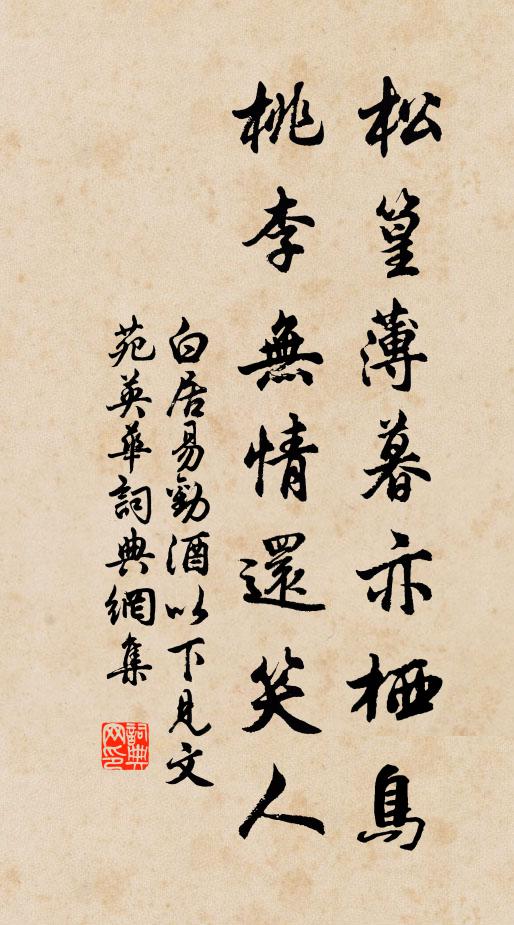 松篁薄暮亦栖鳥
桃李無情還笑人
白居易勸酒以下見文
苑英華詞典網集
詞典网印